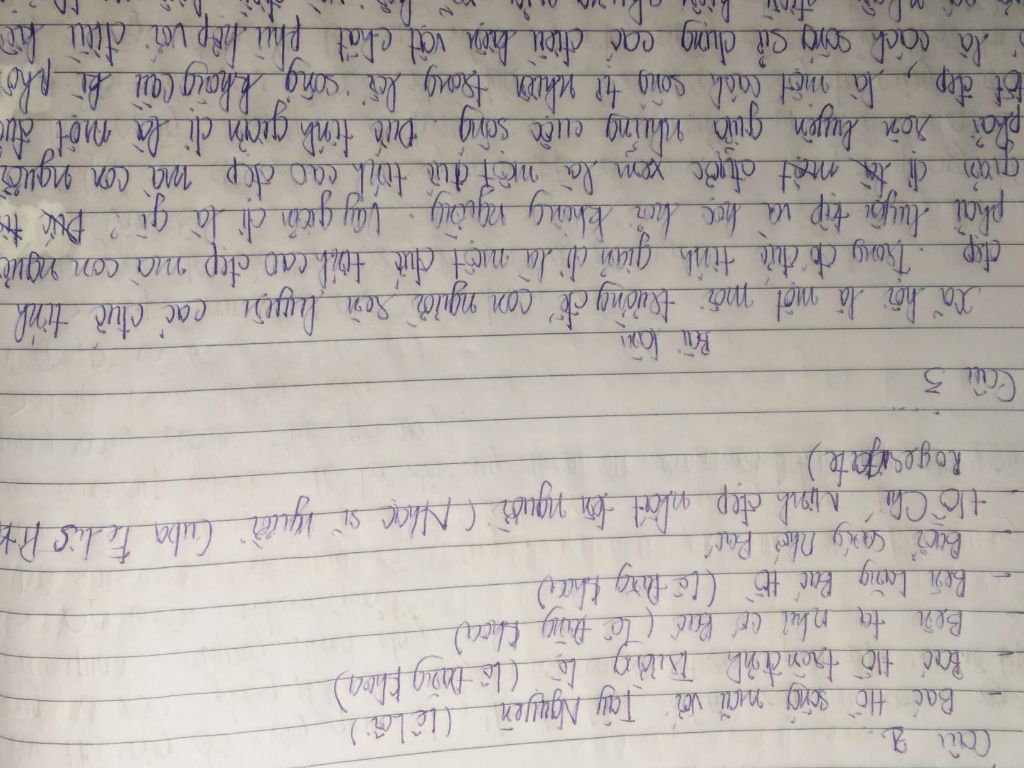 Câu 2
- Bác Hồ sống mãi với Tây Nguyên (Lê Lôi)
- Bác Hồ trên đỉnh Trường Lệ (Lê Đăng Khoa)
- Bên ta như có Bác (Lê Đăng Khoa)
- Bên Lăng Bác Hồ (Lê Đăng Khoa)
- Buổi sáng nhớ Bác
- Hồ Chí Minh đẹp nhất tên người (Nhạc sĩ người Cuba
Câu 3
Bài làm
Xã hội là một môi trường để con người rèn luyện các đức tính
đẹp. Trong đó đức tính giản dị là một đức tính cao đẹp mà con người
phải luyện tập và học hỏi không ngừng. Vậy giản dị là gì? Đức
giản dị là một được xem là một đức tính cao đẹp mà con người
phải rèn luyện giữa những cuộc sống. Đức tính giản dị là một
tốt đẹp, là một cách sống tự nhiên trong lối sống không cầu kì
là cách sống sử dụng các điều kiện vật chất phù hợp với điều